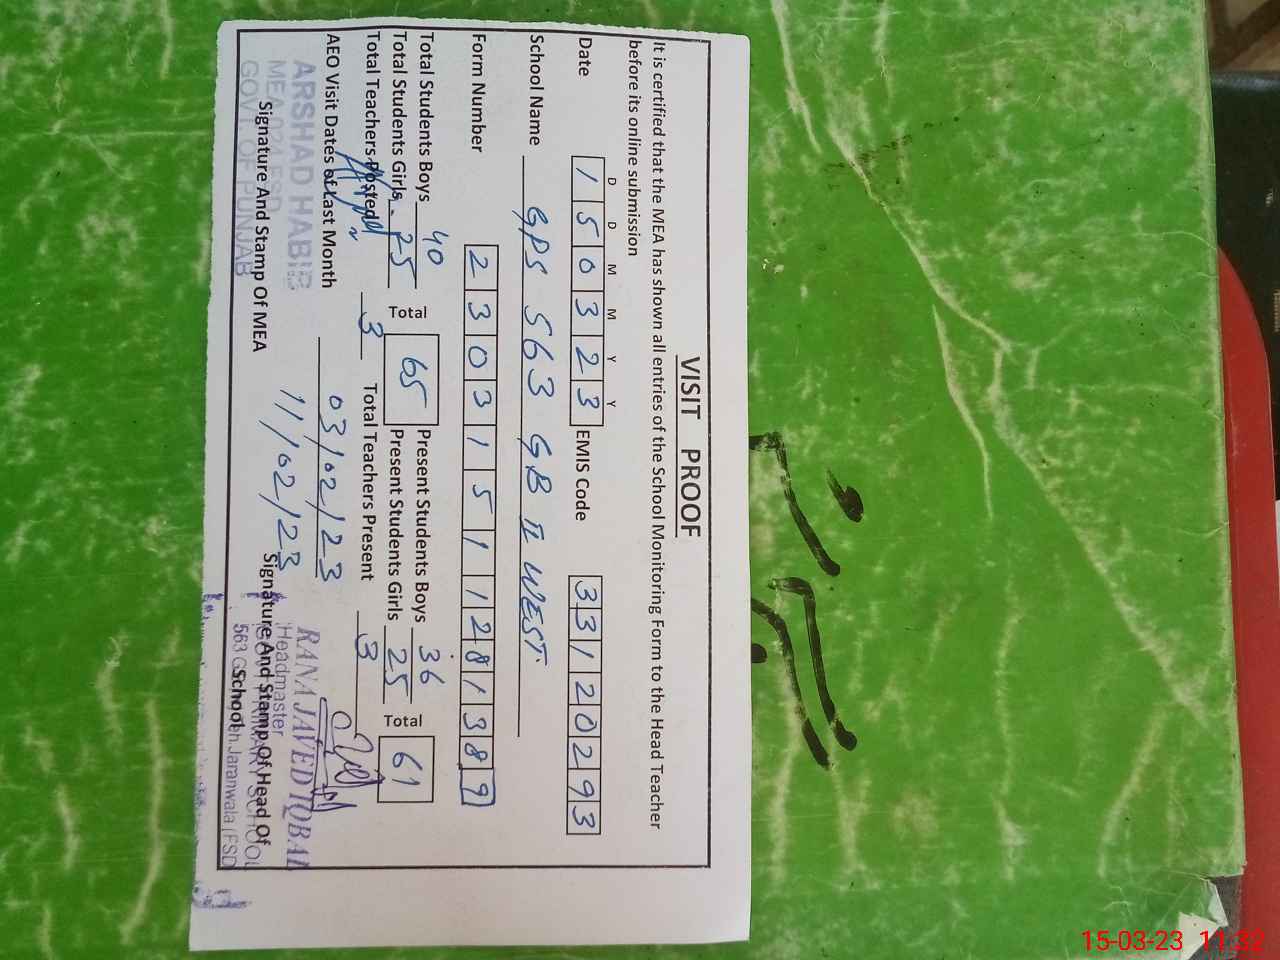 VISIT PROOF
It is certified that the MEA has shown all entries of the School Monitoring Form to the Head Teacher
before its online submission
D D M M Y Y
Date 150323 EMIS Code 33120293
School Name GPS 563 GB II WEST
Form Number 23031511281389
Total Students Boys 40 Present Students Boys 36
Total Students Girls 25 Total 65 Present Students Girls 25 Total 61
Total Teachers Posted 3 Total Teachers Present 3
AEO Visit Dates of Last Month 03/02/23
11/02/23
ARSHAD HABIB
GOVT OF PUNJAB
Signature And Stamp Of MEA
RANA JAVED IQBAL
Headmaster
Signature And Stamp Of Head Of
School
563 G Jaranwala (FSD
15-03-23 11:32